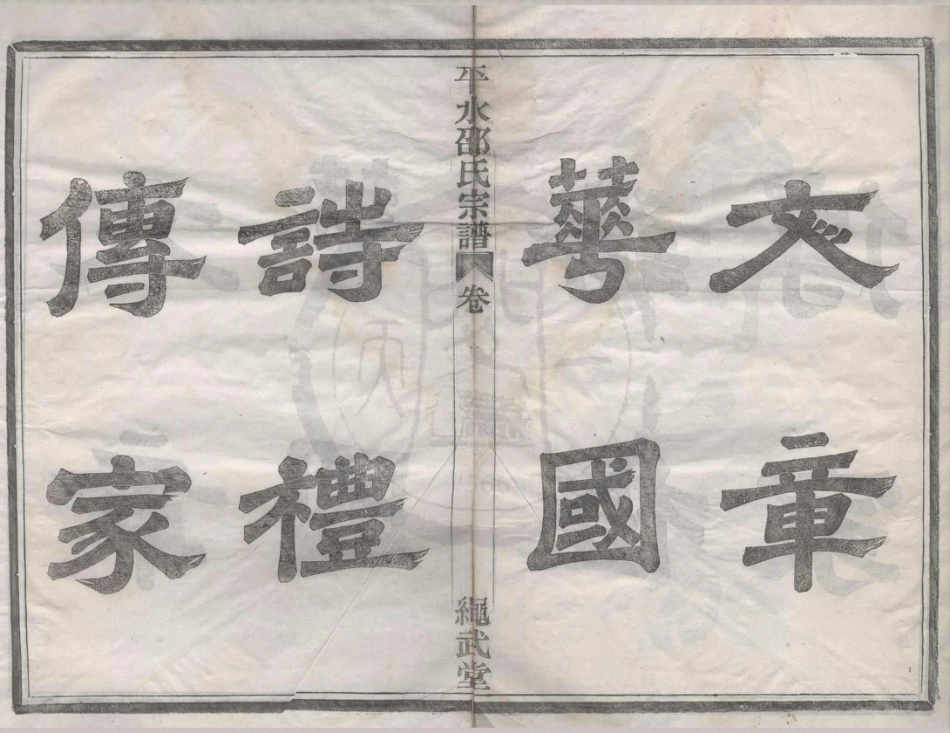 文章
華國
平水邵氏宗譜 卷 繩武堂
詩禮
傳家